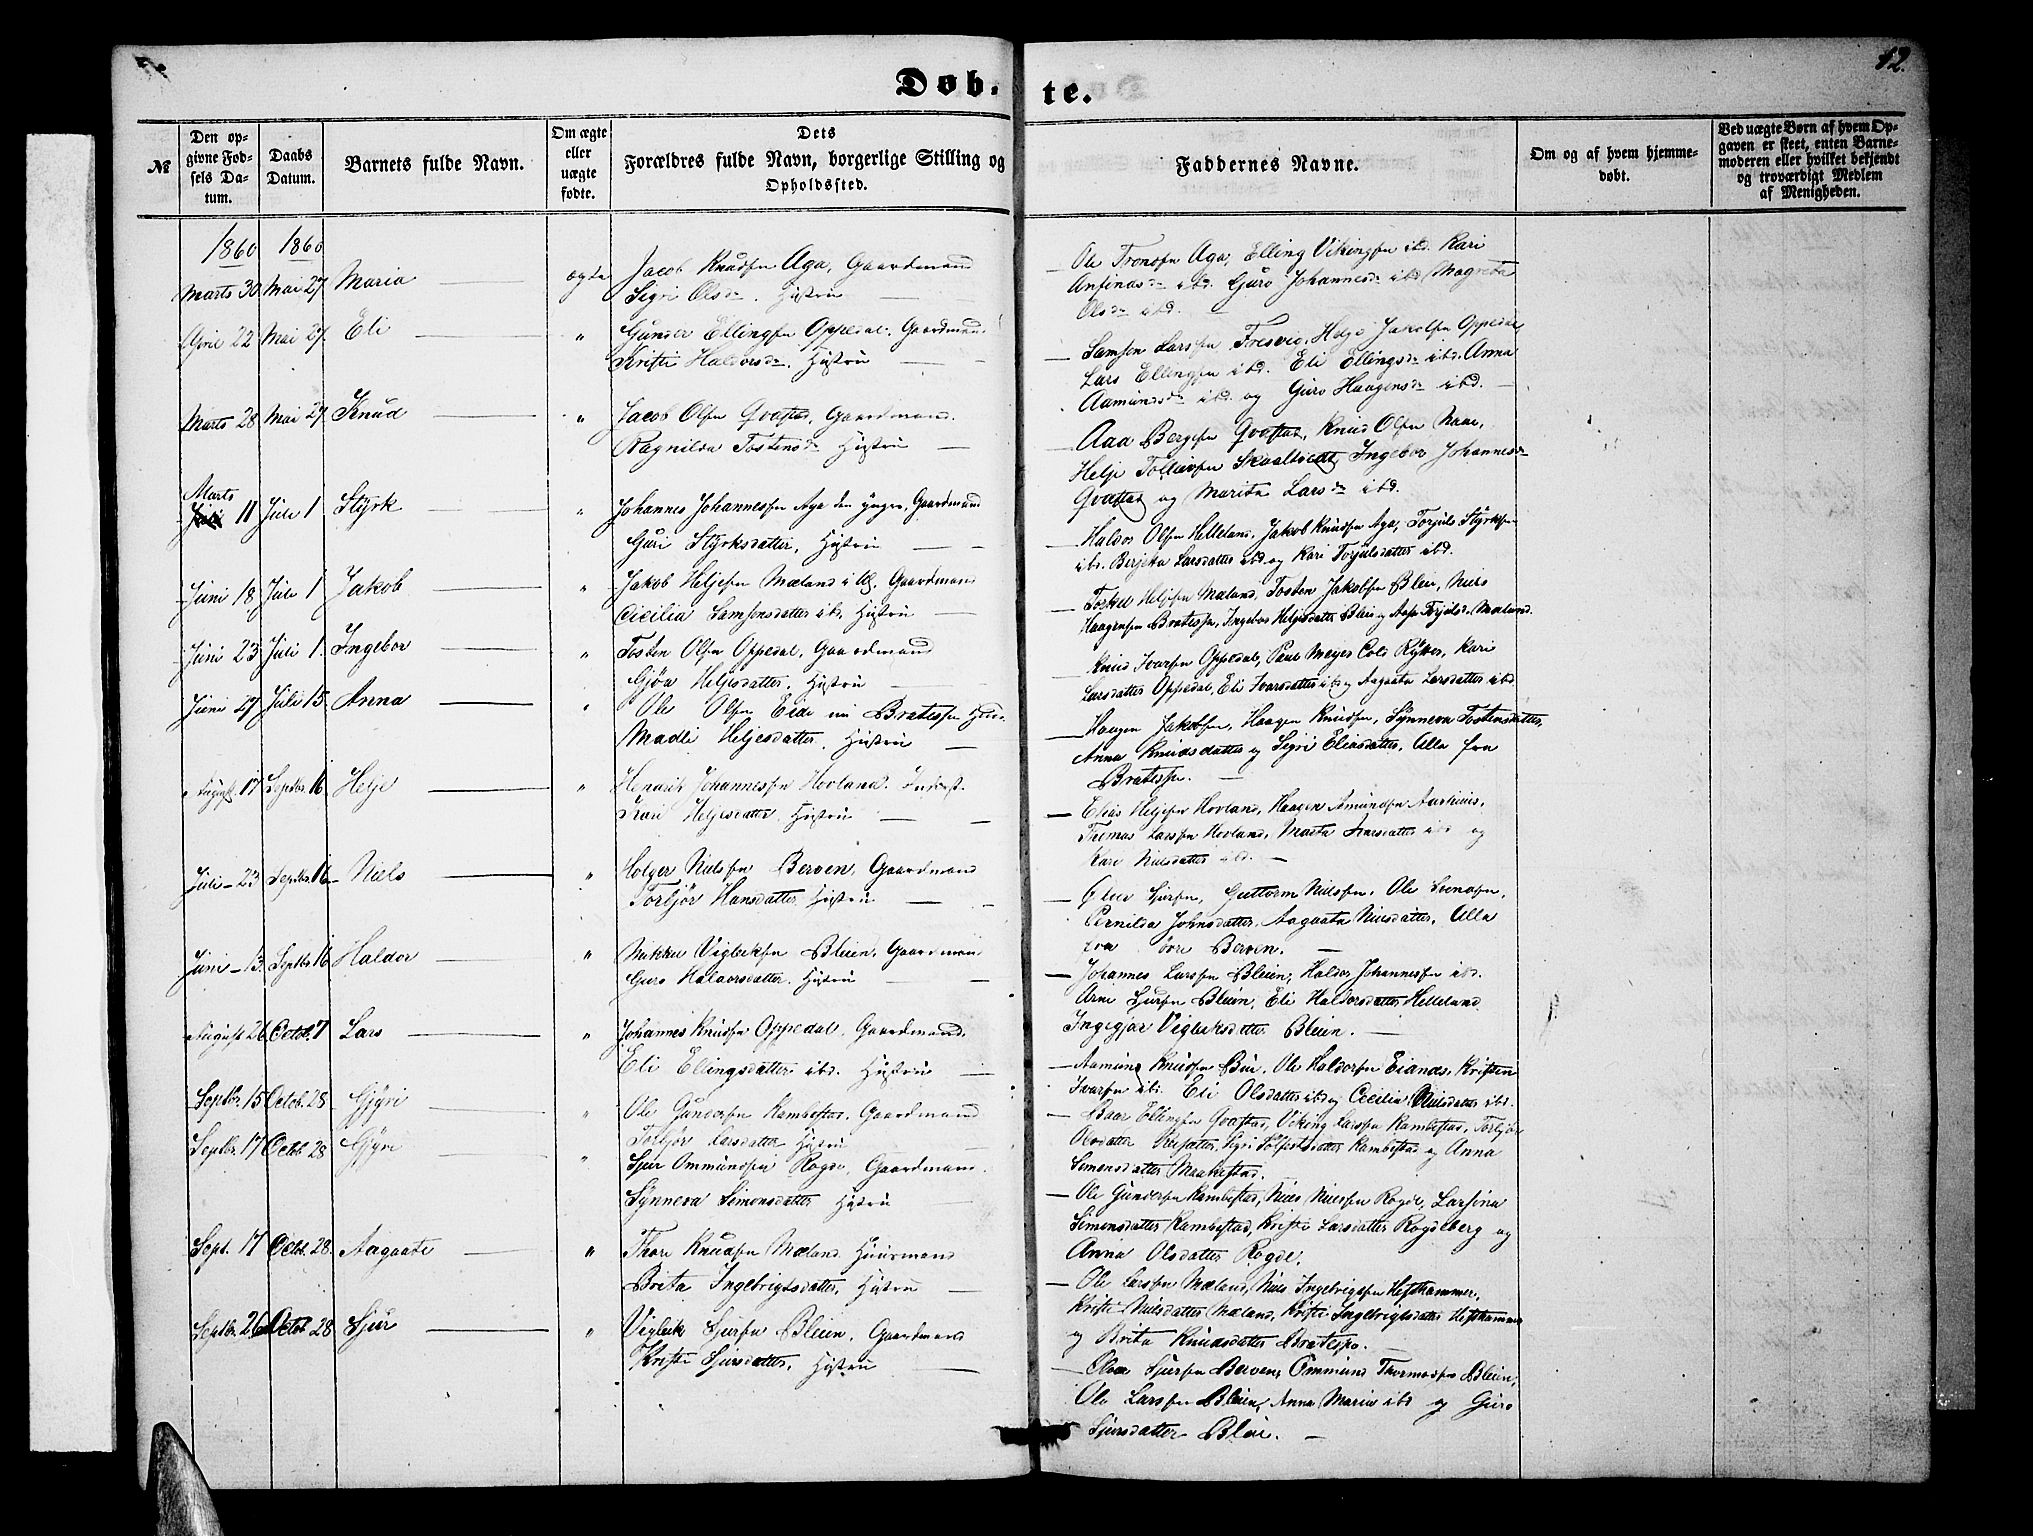 12.
Døb- te.
№
Den op-
givne Fød-
sels Da-
tum.
Daabs
Datum.
Barnets fulde Navn.
Om ægte
eller
uægte
fødte.
Dets
Forældres fulde Navn, borgerlige Stilling og
Opholdssted.
Faddernes Navne.
Om og af hvem hjemme-
døbt.
Ved uægte Børn af hvem Op-
gaven er skeet, enten Barne-
moderen eller hvilket bekjendt
og troværdigt Medlem
af Menigheden.
1860 1860
Marts 30 Mai 27 Maria ægte
Jacob Knudsen Aga, Gaardmand
Sigri Olsdr. Hustru
Ole Tronsen Aga, Elling Vikingsen ibd. Kari
Anfinnsdr ibd. Guro Johannesdr ibd. Magreta
Olsdr ibd.
22 Mai 27. Eli "
Gunder Ellingsen Oppedal. Gaardmand
Kristi Haldorsdr. Hustru
Samson Larssen Tresvig, Helge Jakobsen Oppedal
Lars Ellingsen ibd. Eli Ellingsdr ibd. Anna
Aamundsdr ibd. og Guro Haagensdr ibd.
Marts 28 Mai 27 Knud "
Jacob Olsen Qvæstad, Gaardmand.
Ragnilda Tostensdr Hustru
Aaa Bergesen Qvæstad, Knud Olsen
Helje Skaaltveat, Ingebor Johannesdr
Qvæstad og Marita Larsdr ibd.
Marts
11 Juli 1 Styrk "
Johannes Johannessen Aga den yngre, Gaardmand
Guri Styrksdatter, Hustru
Haldor Olsen Helleland, Jakob Knudsen Aga, Torjuls Styrksen
ibd. Berjeta Larsdatter ibd. og Kari Torjulsdatter ibd.
Juni 18 Juli 1 Jakob "
Jakob Heljesen Mæland i Ull. Gaardmand
Cicilia Samsonsdatter ibd. Hustru
Torkel Heljesen Mæland, Tosten Jakobsen Bleie, Niels
Haagensen Bratespe, Ingebor Heljesdatter Bleie og Aase Torjulsdr Mæland.
Juni 23 Juli 1. Ingebor "
Tosten Olsen Oppedal, Gaardmand
Gjøa Heljesdatter. Hustru
Knud Ivarsen Oppedal, Paul Meyer Cold Kari
Larsdatter Oppedal, Eli Ivarsdatter ibd og Aagaata Larsdatter ibd
Juni 27 Juli 15. Anna "
Ole Olsen Eide nu Bratespe Huus.
Madli Heljesdatter. Hustru
Haagen Jakobsen, Haagen Knudsen, Synneva Tostensdatter,
Anna Knudsdatter og Sigri Eliasdatter, Alle fra
Bratespe.
August. 17 Septbr. 16 Helje "
Hendrik Johannessen Hovland. Inderst.
Kari Heljesdatter. Hustru
Elias Heljesen Hovland, Haagen Amundsen Aarhuus,
Thomas Larssen Hovland, Marta Larsdatter ibd og
Kari Nielsdatter ibd.
Juli 23 Septbr. 16 Niels "
Holger Nielssen Berven, Gaardmand
Torbjør Hansdatter. Hustru
Sjursen, Guttorm Nielssen. Ole
Pernilda Johnsdatter, Aagaata Nielsdatter, Alle
fra øvre Berven.
Juni 13. Septbr 16 Haldor "
Viglecksen Bleien, Gaardmand
Guro Haldorsdatter. Hustru
Johannes Larssen Bleien, Haldor Johannessen ibd.
Arne Sjursen Bleien, Eli Haldorsdatter Helleland
Ingegjær Vigleiksdatter Bleien.
August 26. Octob. 7 Lars "
Johannes Knudsen Oppedal, Gaardmand.
Eli Ellingsdatter ibd. Hustru
Aamund Knudsen Bu. Ole Haldorsen Eianes, Kristen
Ivarsen ibd. Eli Olsdatter ibd og Cecilia Nielsdatter ibd.
Septbr. 15 Octob. 28 Gjyri "
Ole Gundersen Kambestad. Gaardmand
Torbjør Larsdatter Hustru
Baar Ellingsen Qvæstad, Viking Larssen Kambestad, Torbjør
Olsdatter Sigri Kambestad og Anna
Simonsdatter Maakestad.
Septbr. 17 Octb 28 Gjyri "
Sjur Ommundsen Rogde, Gaardmand.
Synneva Simonsdatter Hustru
Ole Gundersen Kambestad, Niels Nielssen Rogde, Larsina
Simonsdatter Kambestad, Kristi Larsdatter Rogdeberg og
Anna Olsdatter Rogde.
Sept. 17 Octb. 28. Aagaate "
Thore Knudsen Mæland Huusmand
Brita Ingebrigtsdatter, Hustru
Ole Larssen Mæland, Niels Ingebrigtsen Hesthammer,
Kristi Nielsdatter Mæland, Kristi Ingebrigtsdatter Hesthammer
og Brita Knudsdatter Bratespe.
Septbr. 26 Octob 28 Sjur "
Vigleik Sjursen Bleien, Gaardmand
Kristi Sjursdatter, Hustru
Olav Sjursen Berven, Ommund Thormodsen Bleien,
Ole Larssen Bleien, Anna Maria ibd og Guro
Sjursdatter Bleie.